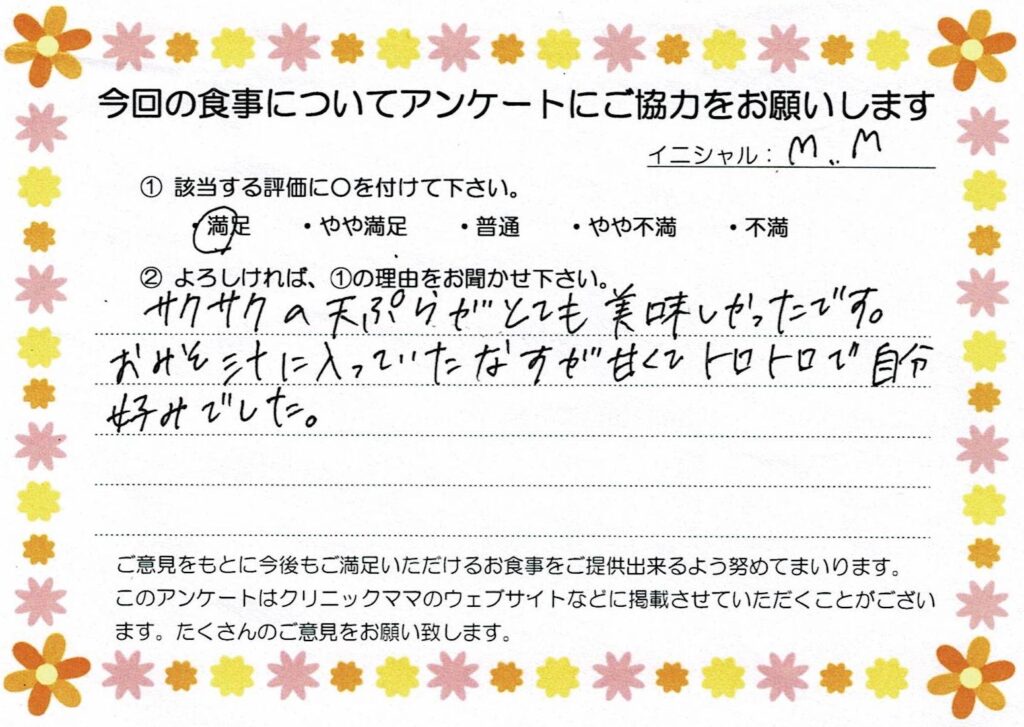 今回の食事についてアンケートにご協力をお願いします
イニシャル： M.. M
① 該当する評価に〇を付けて下さい。
・満足 ・やや満足 ・普通 ・やや不満 ・不満
② よろしければ、①の理由をお聞かせ下さい。
サクサクの天ぷらがとても美味しかったです。
おみそ汁に入っていたなすが甘くてトロトロで自分
好みでした。
ご意見をもとに今後もご満足いただけるお食事をご提供出来るよう努めてまいります。
このアンケートはクリニックママのウェブサイトなどに掲載させていただくことがござい
ます。たくさんのご意見をお願い致します。